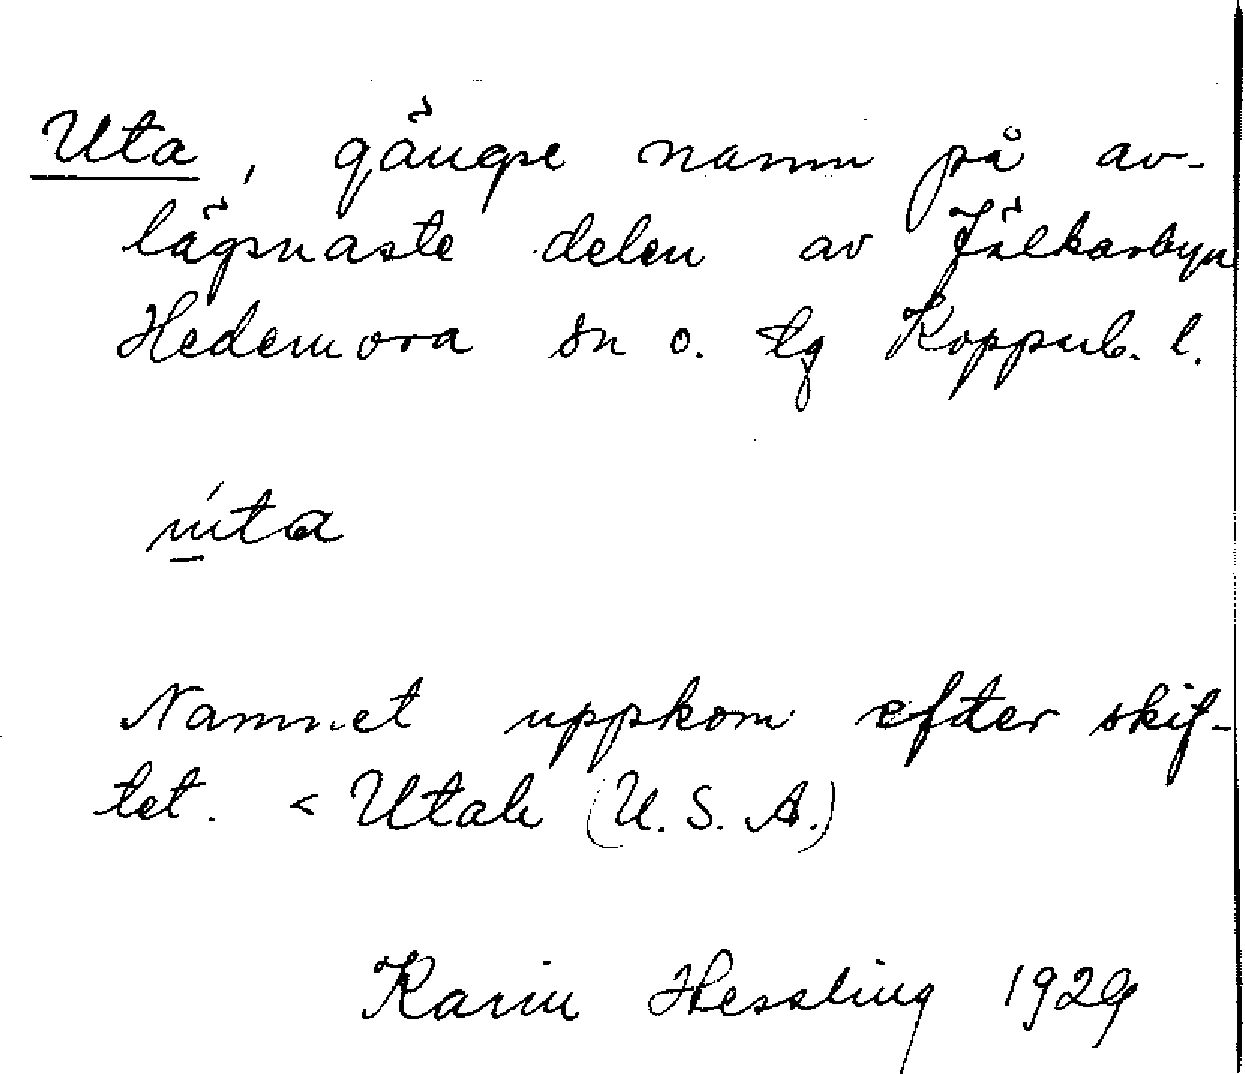 Uta, gängse namn på av-
lägsnaste delen av Jälkarbyn
Hedemora sn o. tg Koppub. l.
úta
Namnet uppkom efter skif-
tet. < Utah (U.S.A.)
Karin Hessling 1929